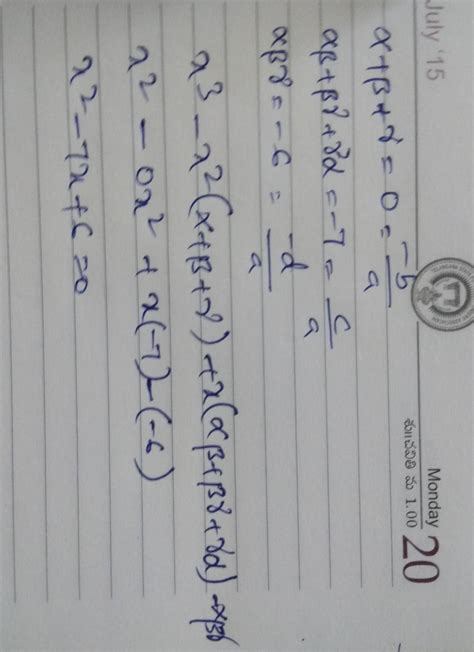 July '15
Monday 20
చవితి మ 1.00
α+β+γ = 0 = -b/a
αβ+βγ+γα = -7 = c/a
αβγ = -6 = -d/a
x³ - x²(α+β+γ) + x(αβ+βγ+γα) - αβγ
x² - 0x² + x(-7) - (-6)
x² - 7x + 6 = 0